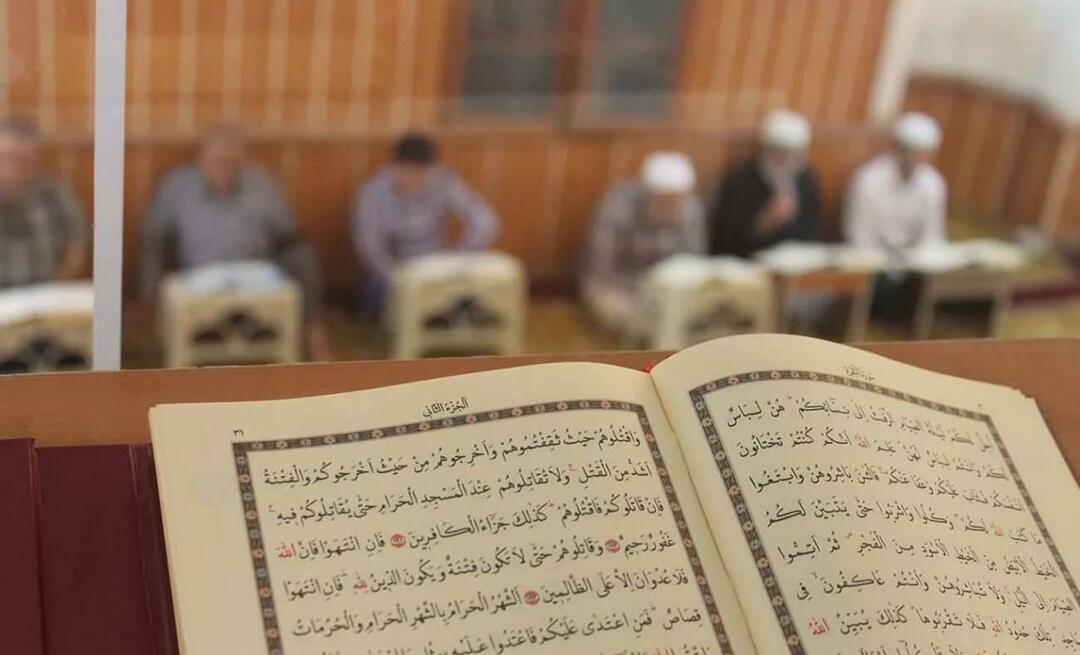 سورة البقرة
اُحِلَّ لَكُمْ لَيْلَةَ الصِّيَامِ الرَّفَثُ اِلٰى نِسَٓائِكُمْ هُنَّ لِبَاسٌ
لَكُمْ وَاَنْتُمْ لِبَاسٌ لَهُنَّ عَلِمَ اللّٰهُ اَنَّكُمْ كُنْتُمْ تَخْتَانُونَ
اَنْفُسَكُمْ فَتَابَ عَلَيْكُمْ وَعَفَا عَنْكُمْ فَالْـٰٔنَ بَاشِرُوهُنَّ وَابْتَغُوا
مَا كَتَبَ اللّٰهُ لَكُمْ وَكُلُوا وَاشْرَبُوا حَتّٰى يَتَبَيَّنَ لَكُمُ
الْخَيْطُ الْاَبْيَضُ مِنَ الْخَيْطِ الْاَسْوَدِ مِنَ الْفَجْرِ ثُمَّ اَتِمُّوا
الصِّيَامَ اِلَى الَّيْلِ وَلَا تُبَاشِرُوهُنَّ وَاَنْتُمْ عَاكِفُونَ فِي
تِلْكَ حُدُودُ اللّٰهِ فَلَا تَقْرَبُوهَا كَذٰلِكَ يُبَيِّنُ اللّٰهُ
اَلْجُزْءُ الثَّانِي
وَاقْتُلُوهُمْ حَيْثُ ثَقِفْتُمُوهُمْ وَاَخْرِجُوهُمْ مِنْ حَيْثُ اَخْرَجُوكُمْ وَالْفِتْنَةُ
اَشَدُّ مِنَ الْقَتْلِ وَلَا تُقَاتِلُوهُمْ عِنْدَ الْمَسْجِدِ الْحَرَامِ حَتّٰى يُقَاتِلُوكُمْ فِيهِ
فَاِنْ قَاتَلُوكُمْ فَاقْتُلُوهُمْ كَذٰلِكَ جَزَٓاءُ الْكَافِرِينَ فَاِنِ انْتَهَوْا فَاِنَّ اللّٰهَ
غَفُورٌ رَحِيمٌ وَقَاتِلُوهُمْ حَتّٰى لَا تَكُونَ فِتْنَةٌ وَيَكُونَ الدِّينُ لِلّٰهِ فَاِنِ انْتَهَوْا
فَلَا عُدْوَانَ اِلَّا عَلَى الظَّالِمِينَ اَلشَّهْرُ الْحَرَامُ بِالشَّهْرِ الْحَرَامِ وَالْحُرُمَاتُ
قِصَاصٌ فَمَنِ اعْتَدٰى عَلَيْكُمْ فَاعْتَدُوا عَلَيْهِ بِمِثْلِ